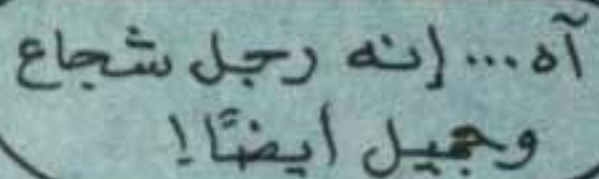 آه... إنه رجل شجاع
وجميل أيضًا!